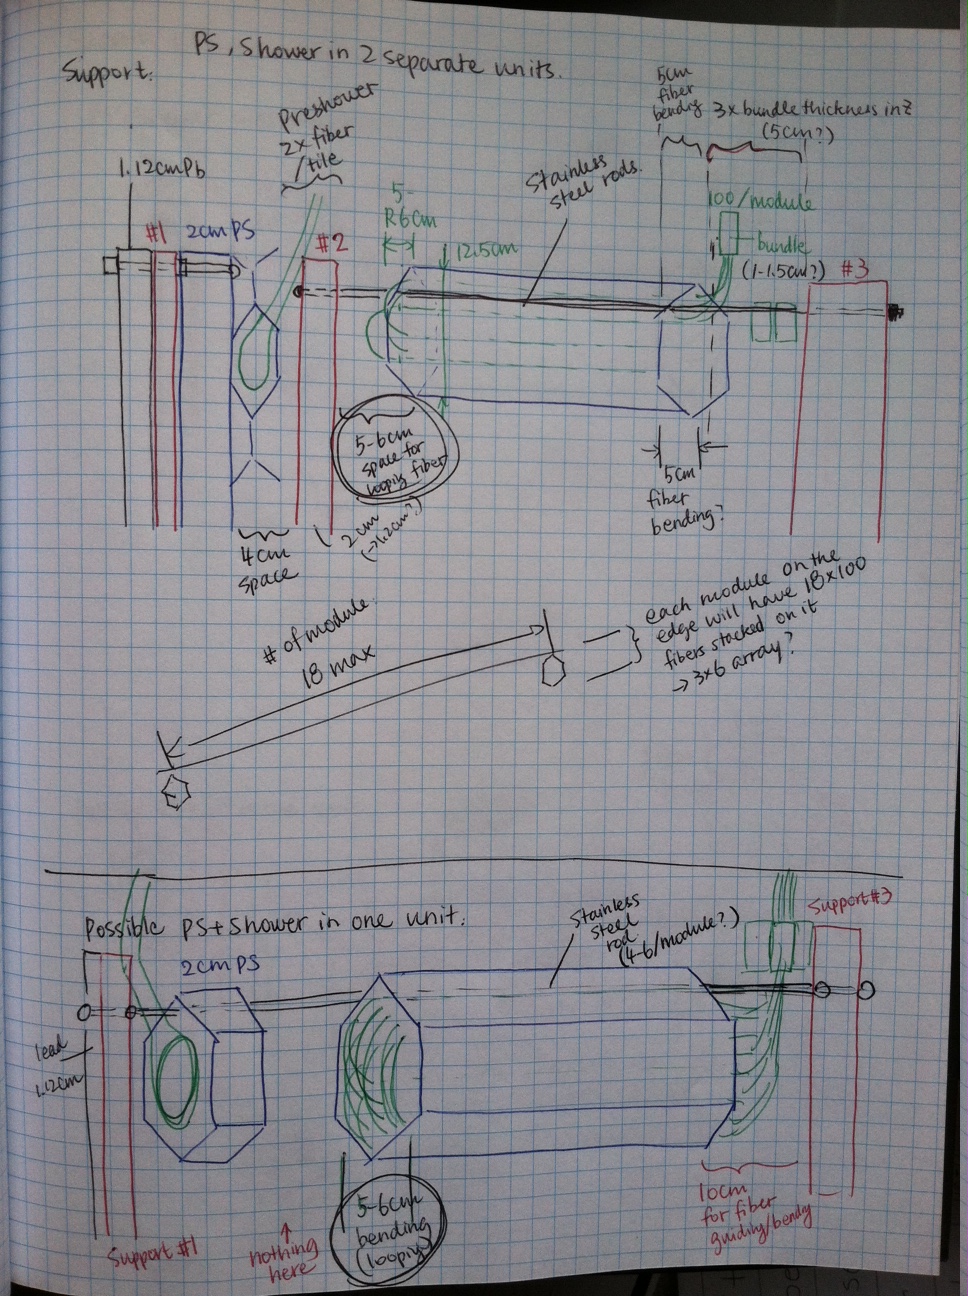 PS, Shower in 2 separate units.
Support:
Preshower
2x fiber
/tile
5cm
fiber
bending
3x bundle thickness in z
(5cm?)
1.12cm Pb
#1
2cm PS
#2
5-
R6cm
12.5cm
Stainless
steel rods.
100/module
bundle
(1-1.5cm?)
#3
5-6cm
space for
looping fiber
2cm
(→1.2cm?)
4cm
space
5cm
fiber
bending?
# of module
18 max
each module on the
edge will have 18x100
fibers stacked on it
→ 3x6 array?
Possible PS+Shower in one unit:
2cm PS
Stainless
steel
rod
(4-6/module?)
Support#3
lead
1.12cm
Support #1
nothing
here
5-6cm
bending
(looping)
10cm
for fiber
guiding/bending